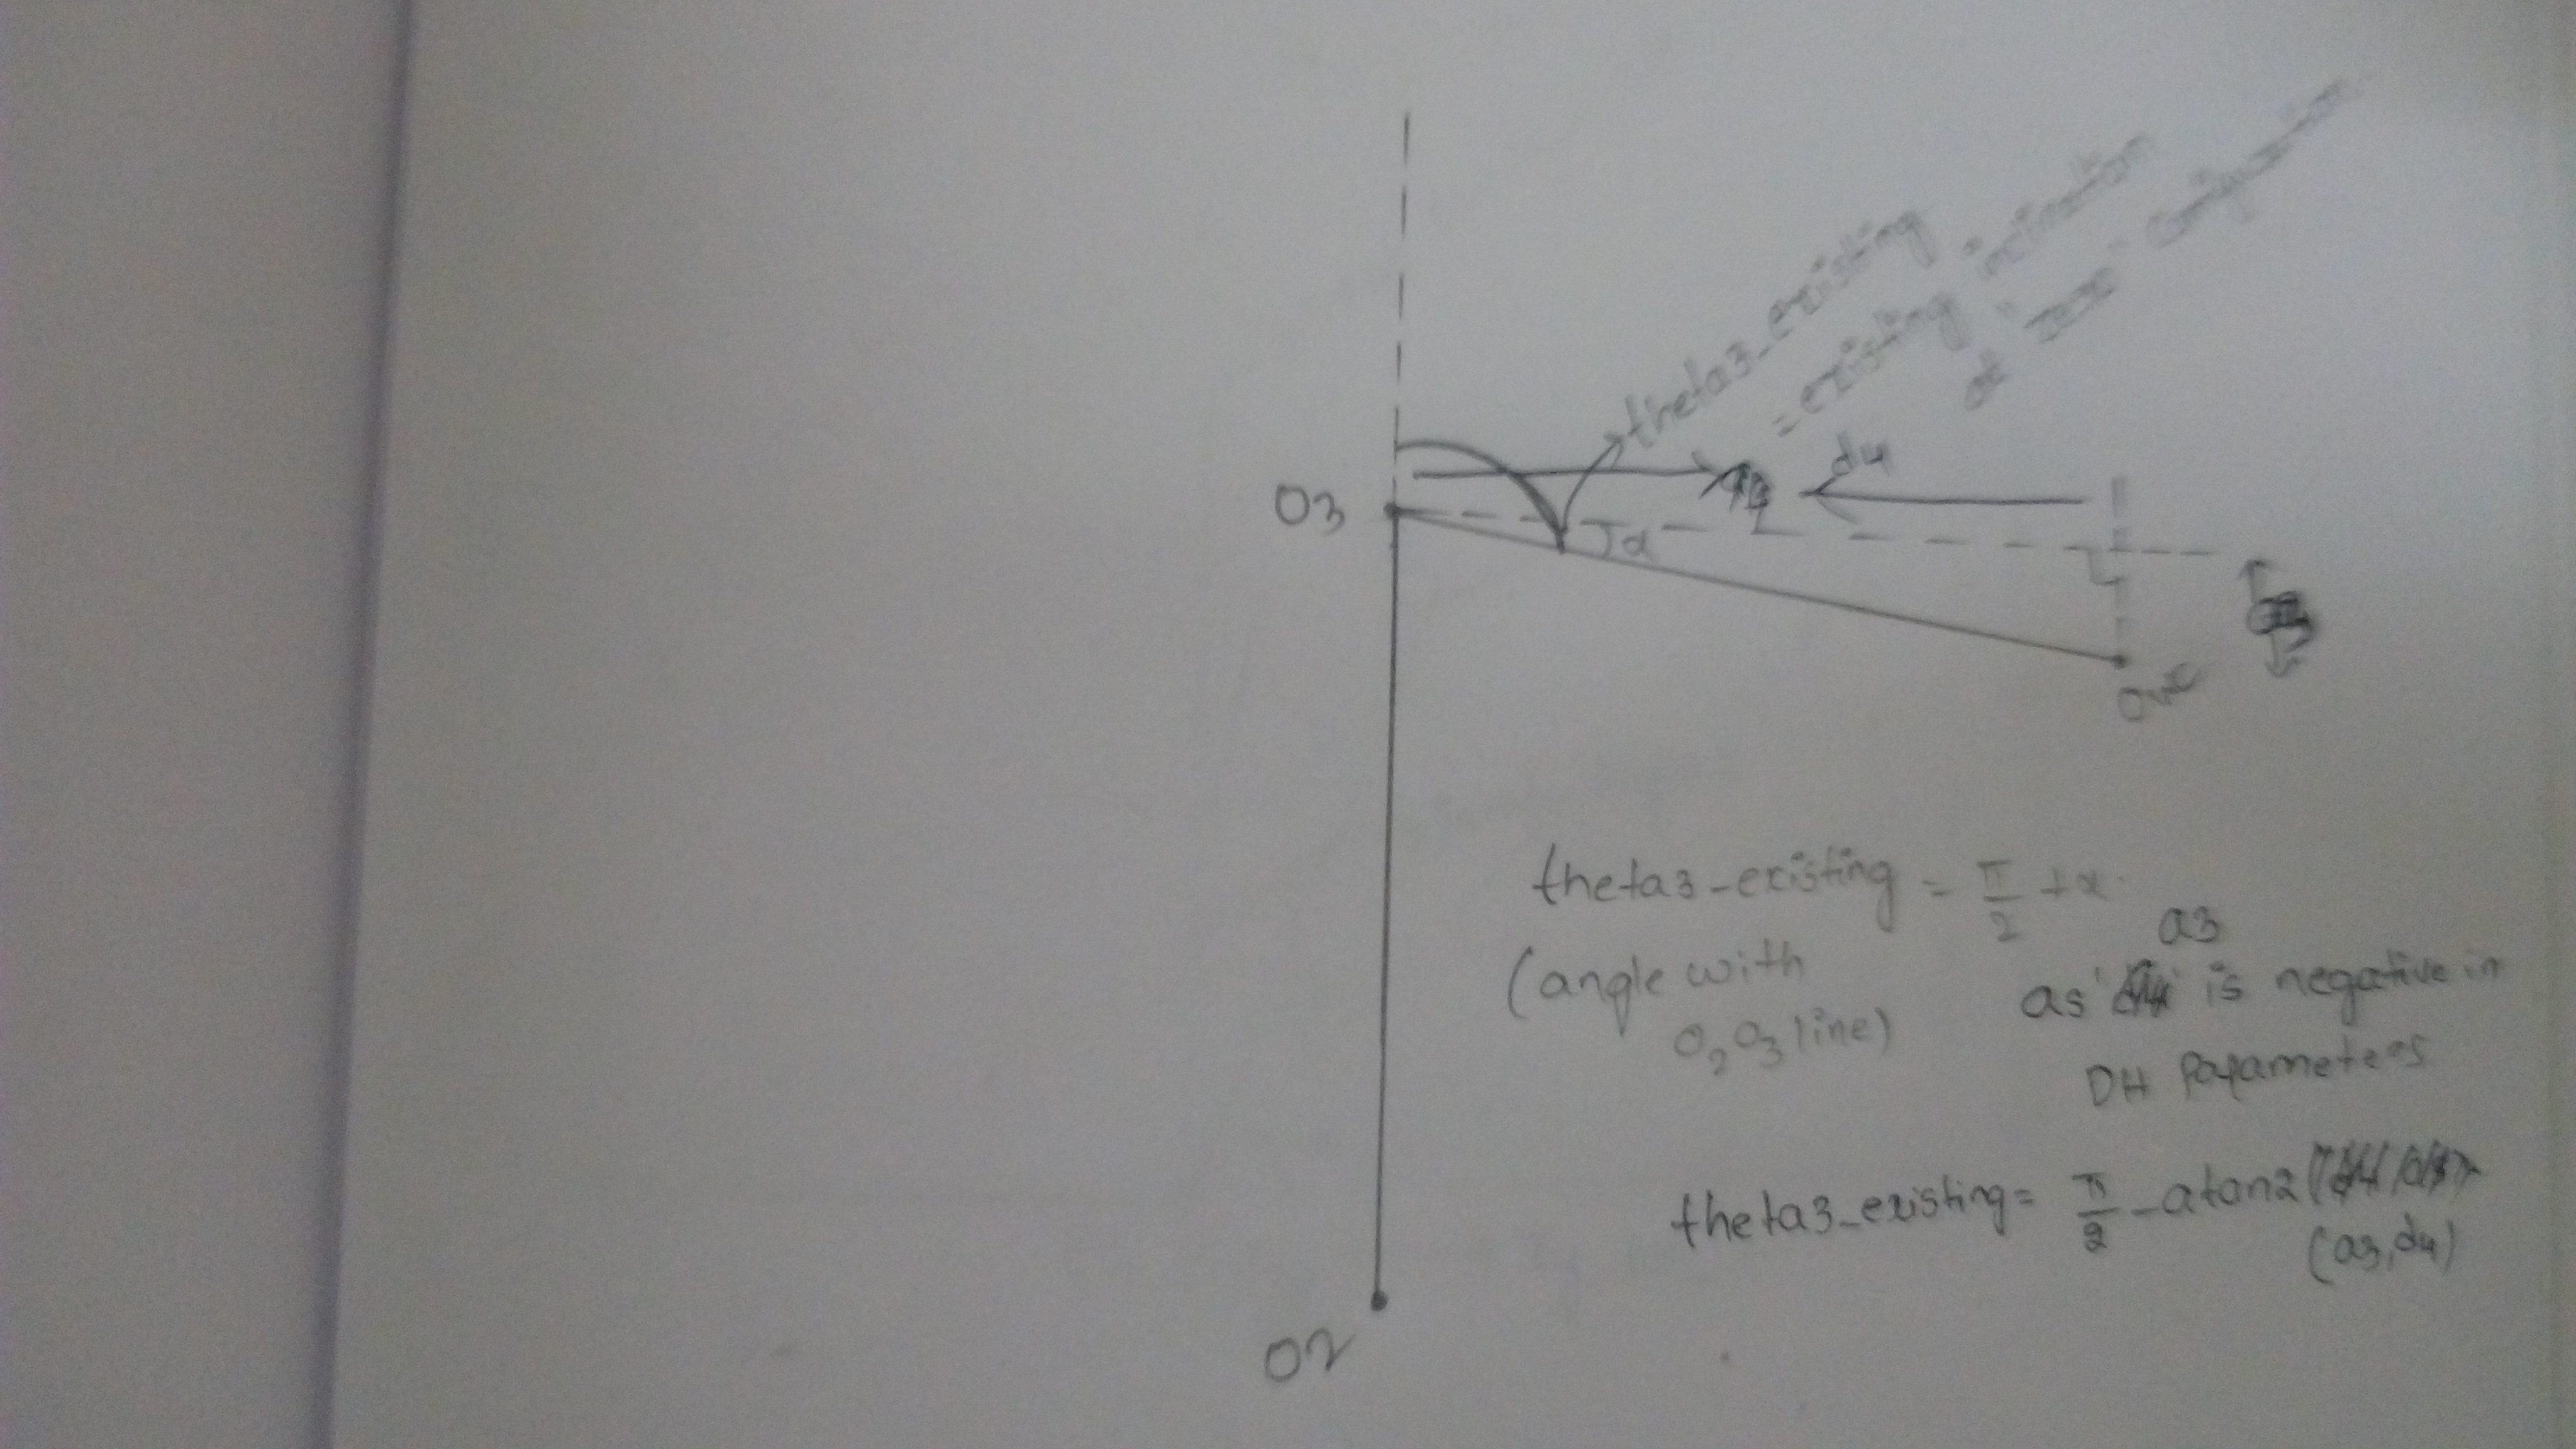 theta3_existing
= existing inclination
at "zero" configuration
d4
O3
α
Owc
theta3-existing = π/2 + α
(angle with
O2O3 line)
a3
as is negative in
DH Parameters
theta3_existing = π/2 - atan2
(a3,d4)
O2